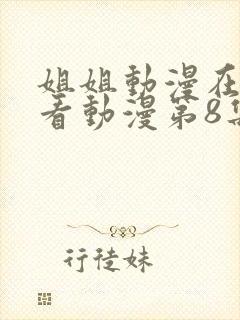 姐姐動漫在
看動漫第8集
行徒妹